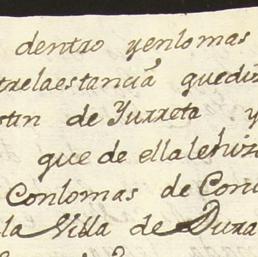 dentro yenlomas
trelaestancia quediz
stin de Yurreta y
que de ellalehizo
Conlomas de Con
la Villa de Dura